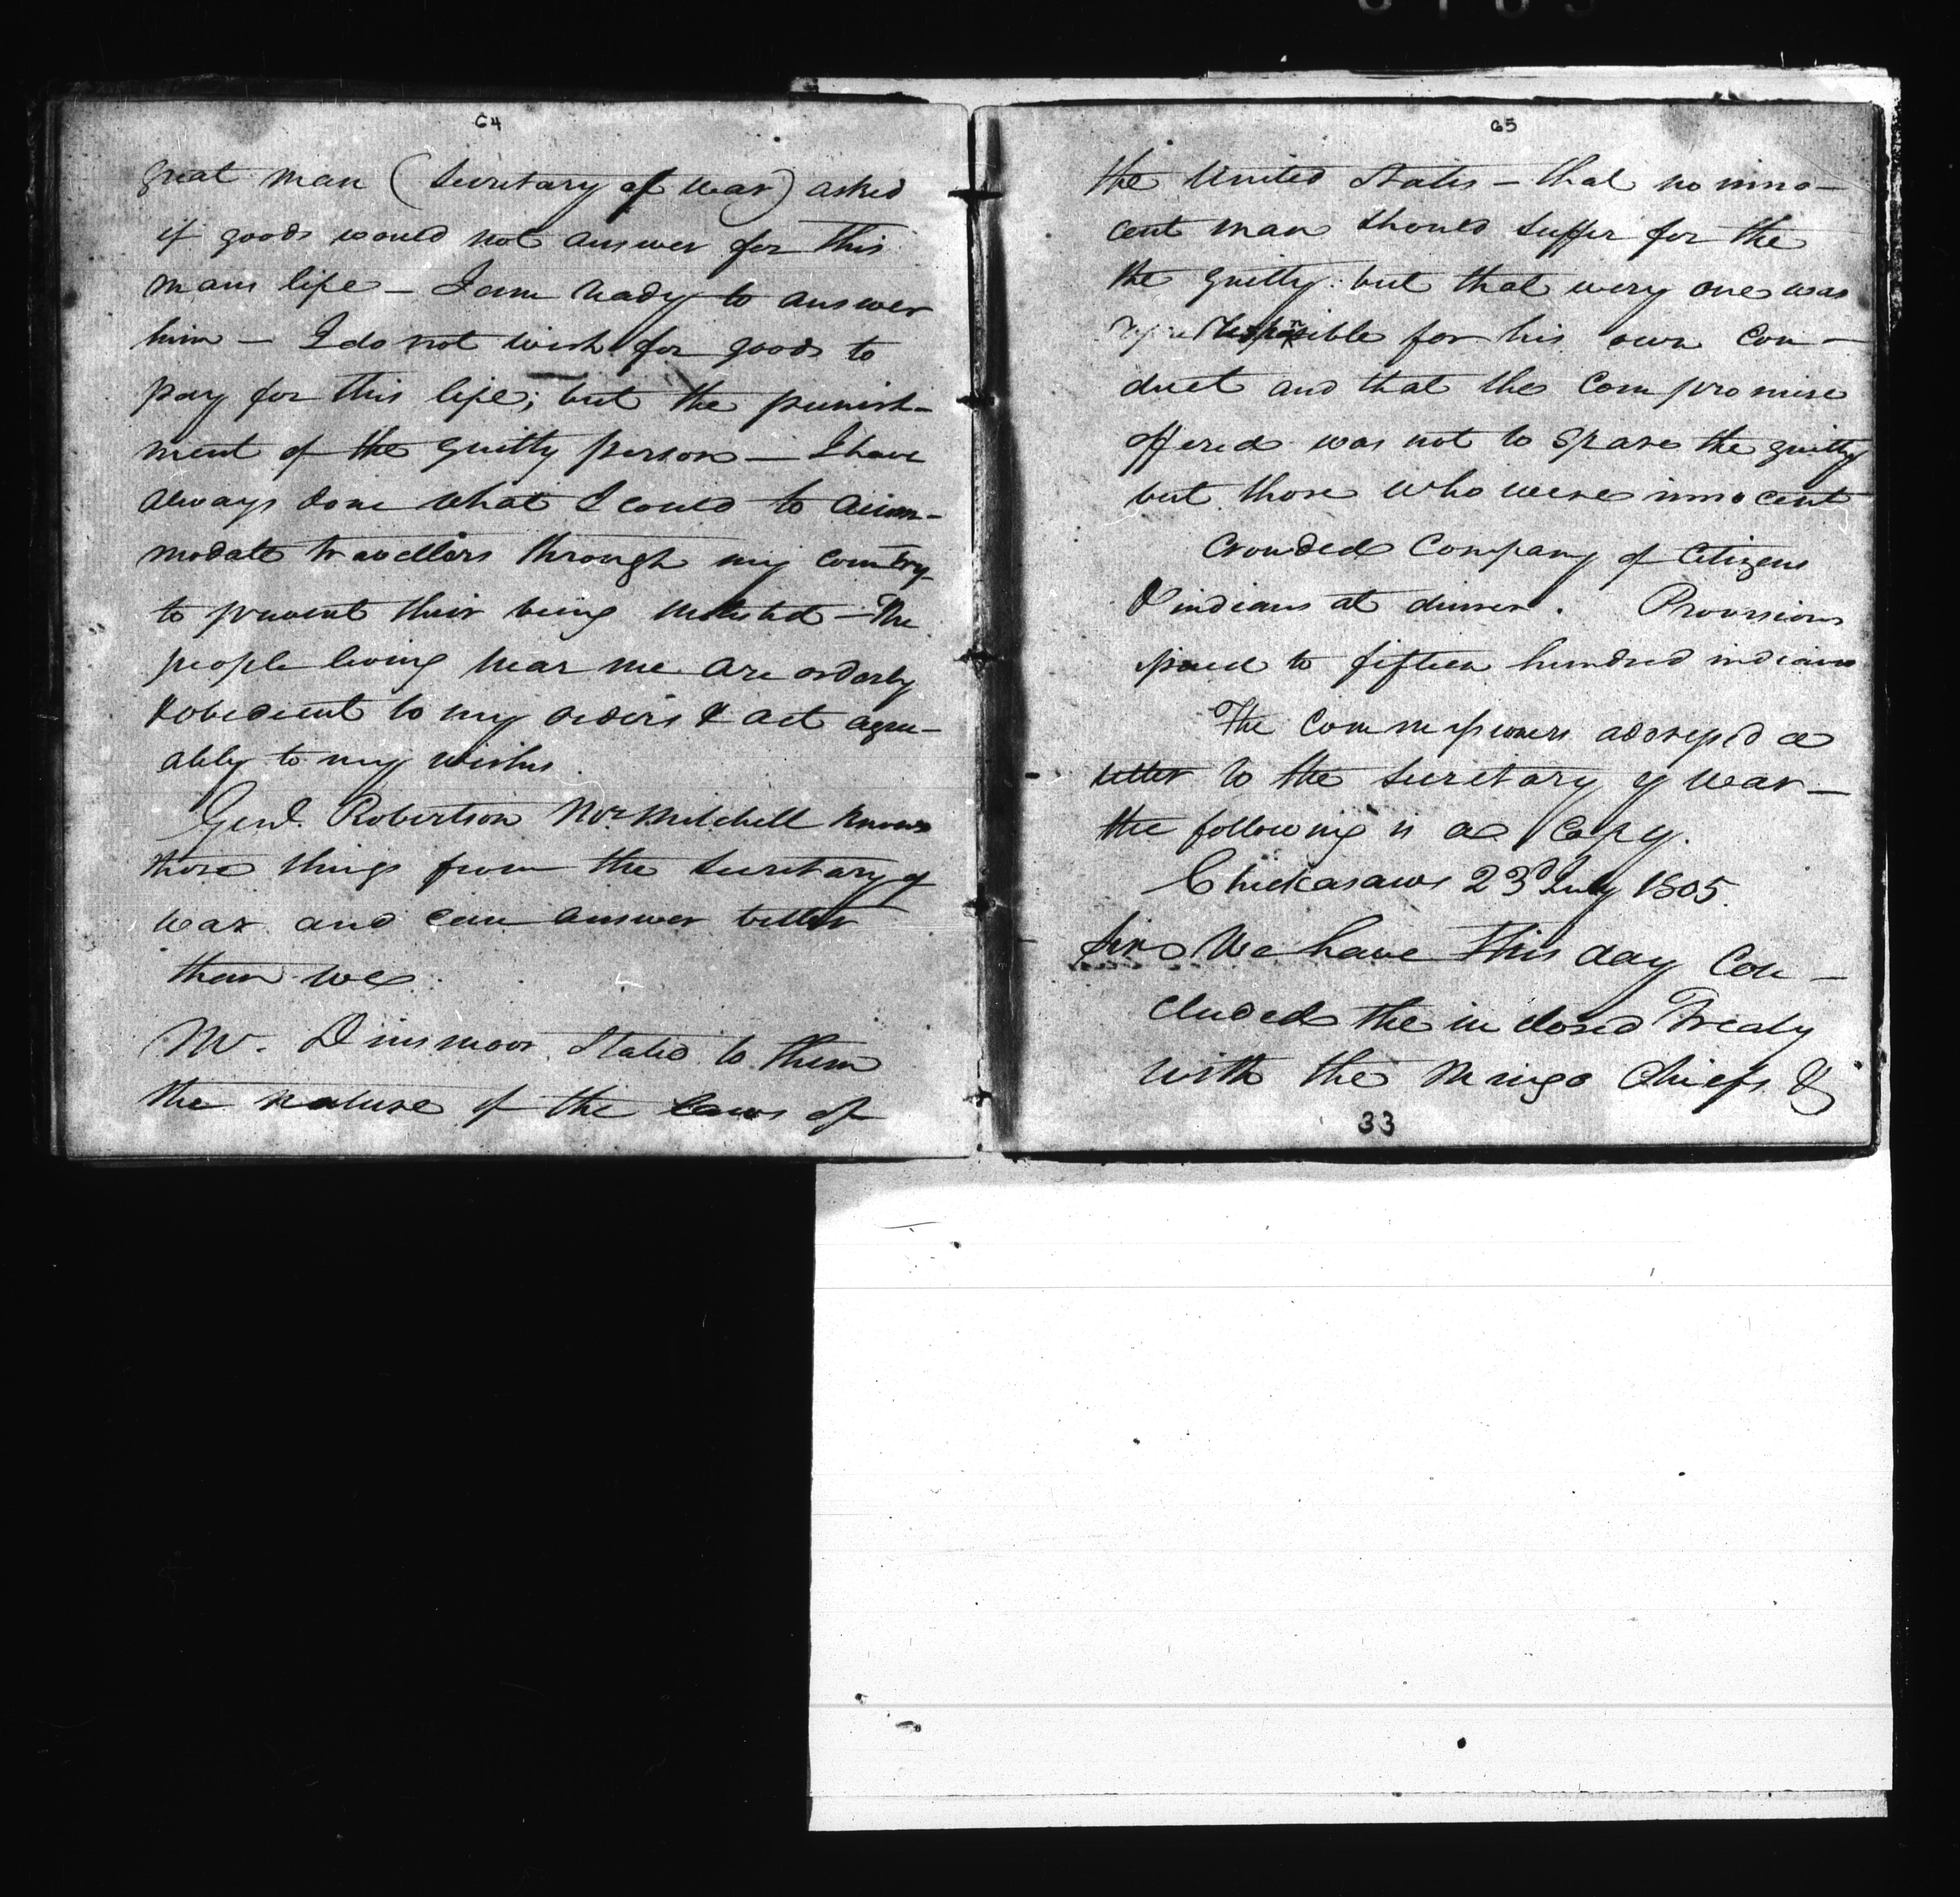 64
great man (Secretary of War) asked
if goods would not answer for this
mans life – I am ready to answer
him – I do not wish for goods to
pay for this life; but the punish-
ment of the guilty person – I have
always done what I could to accom-
modate travellers through my country
to prevent their being molested – The
people living near me are orderly
& obedient to my orders & act agree-
ably to my wishes.
Genl. Robertson Mr. Mitchell knows
those things from the Secretary of
War and can answer better
than we.
Mr. Dinsmoor stated to them
the nature of the laws of
65
the United States – that no inno-
cent man should suffer for the
the guilty: but that every one was
responsible for his own con-
duct and that the compromise
offered was not to spare the guilty
but those who were innocent
Crouded Company of Citizens
& indians at dinner. Provisions
issued to fifteen hundred indians
The Commissioners addressed a
letter to the Secretary of War –
the following is a Copy.
Chickasaws 23d July 1805.
Sir We have this day Con-
cluded the inclosed Treaty
with the Mingo Chiefs &
33